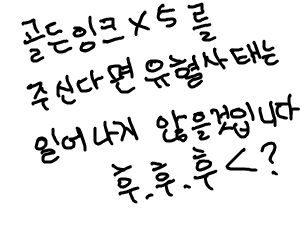 골든잉크 X 5 를
주신다면 유혈사태는
일어나지 않을것입니다
후.후.후 < ?